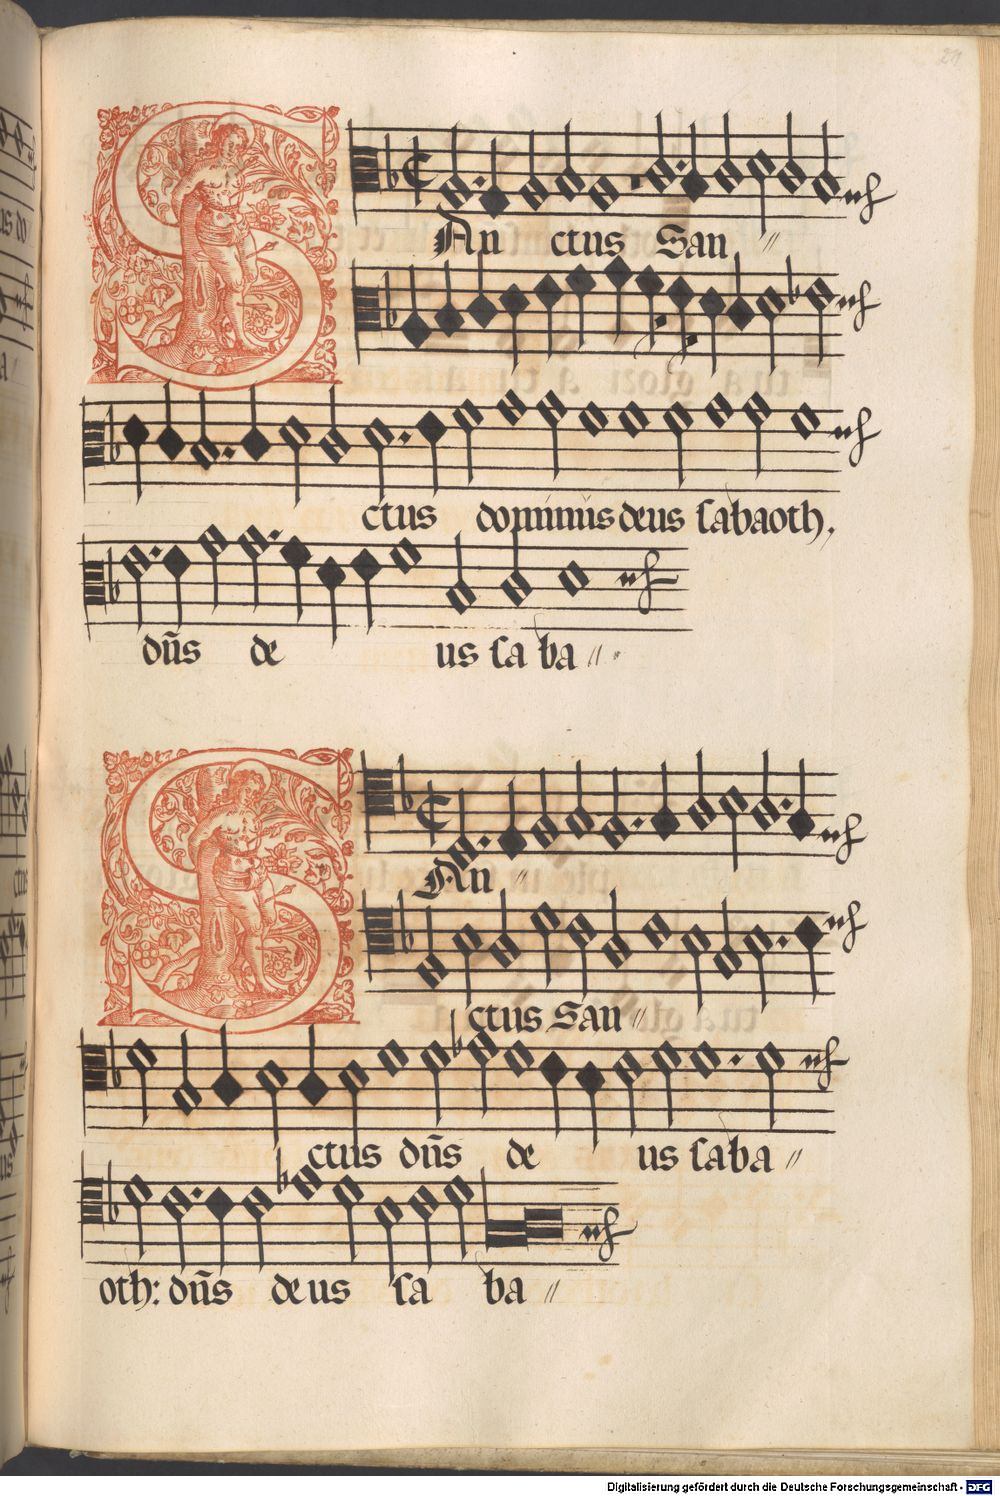 SAn ctus San
ctus dominus deus sabaoth,
dn̄s de us sa ba
SAn
ctus San
ctus dn̄s de us saba
oth: dn̄s deus sa ba
Digitalisierung gefördert durch die Deutsche Forschungsgemeinschaft - DFG